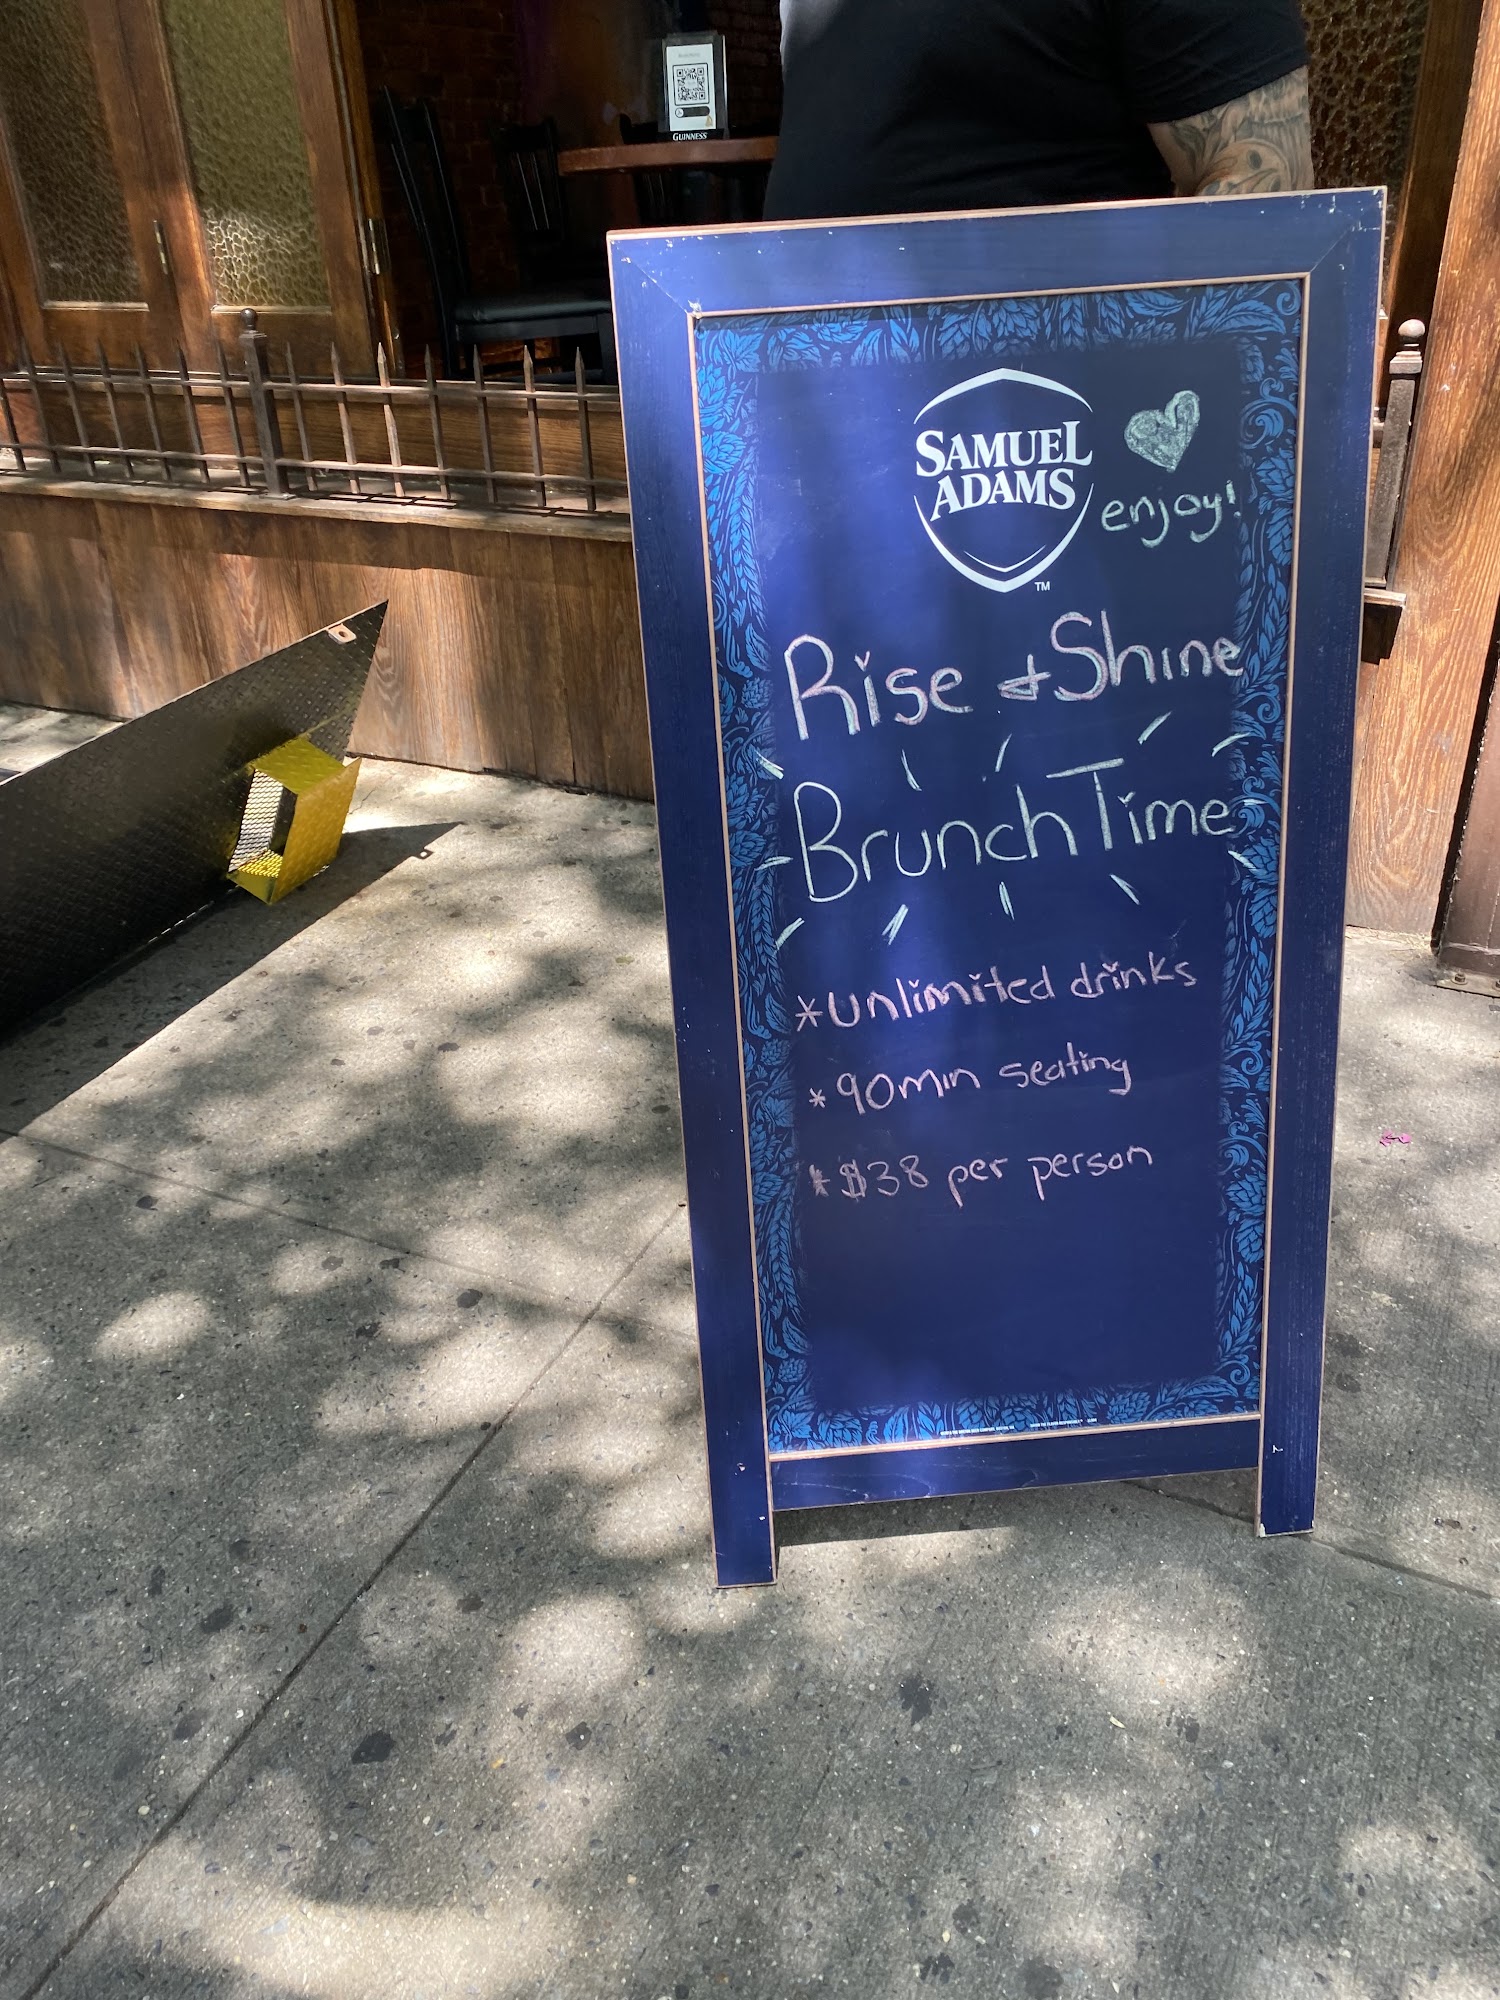 GUINNESS
SAMUEL
ADAMS
TM
enjoy!
Rise & Shine
Brunch Time
*unlimited drinks
*90min seating
*$38 per person